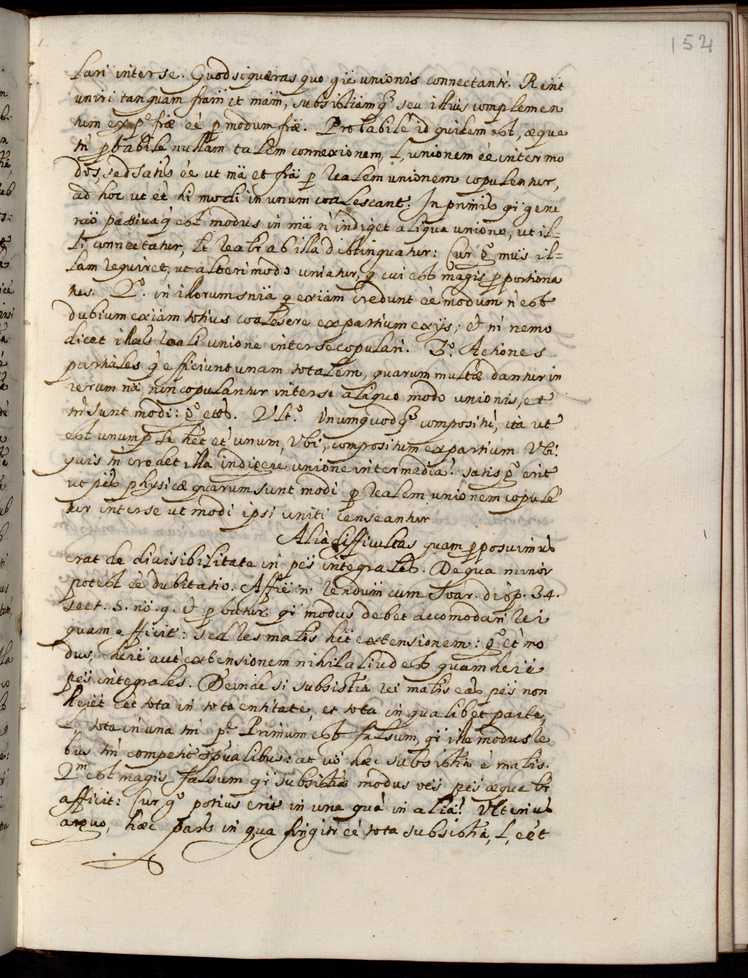 152
lari inter se. Quod si quæras quo gñe unionis connectantr. Rent
uniri tanquam fram et mam, subsistiam q3 seu illius complemen
tum ex pe fræ eé p modum fræ. Probabile id quidem est, æque
tn pbabile nullam talem connexionem, l, unionem eé inter mo
dos, sed satis eé ut ma et fra p realem unionem copulentur,
ad hoc ut et hi modi in unum coalescant. In primis qi gene
rao passiva q est modus in ma n indiget aliqua unione, ut il-
li connectatur, lt realr ab illa distinguatur: Cur go magis il-
lam requiret, ut alteri modo uniatur, q cui est magis pportiona
tus. 2o. in illorum snia q etiam credunt eé modum n est
dubium etiam totius coalescere ex partium exijs; et tn nemo
dicet illas reali unione inter se copulari. 3o. Actiones
partiales q efficiunt unam totalem, quarum multæ dantur in
rerum na, non copulantur inter se aliquo modo unionis, et
tn sunt modi: go etc. Ulto. unumquodq3 compositu, ita ut
est unum p se het et unum Ubi, compositum ex partium Ubi
quis tn credet illa indigere unione intermedia? satis go erit
ut ptes physicæ quarum sunt modi p realem unionem copule
tur inter se ut modi ipsi uniti censeantur
Alia difficultas quam pposuimus
erat de divisibilitate in ptes integrales. De qua minor
potest eé dubitatio. Affir n. tendum cum Soar. disp. 34.
sect. 5. no. 9. et pbatur qi modus debet accomodari rei
quam efficit: sed res malis het extensionem: go et mo
dus; here aut extensionem nihil aliud est quam here
ptes integrales. Deinde si subsistia rei malis eas ptes non
heret eet tota in tota entitate, et tota in qualibet parte,
l, tota in una tn pte. Primum est falsum, qi ille modus re
bus tn competit spualibus: at vo hæc subsistia e malis.
2m est magis falsum qi subsistia modus oes ptes æqualr
afficit: Cur go potius erit in una quá in alia? Ulterius
arguo, hæc pars in qua fingitr eé tota subsistia, l, eet